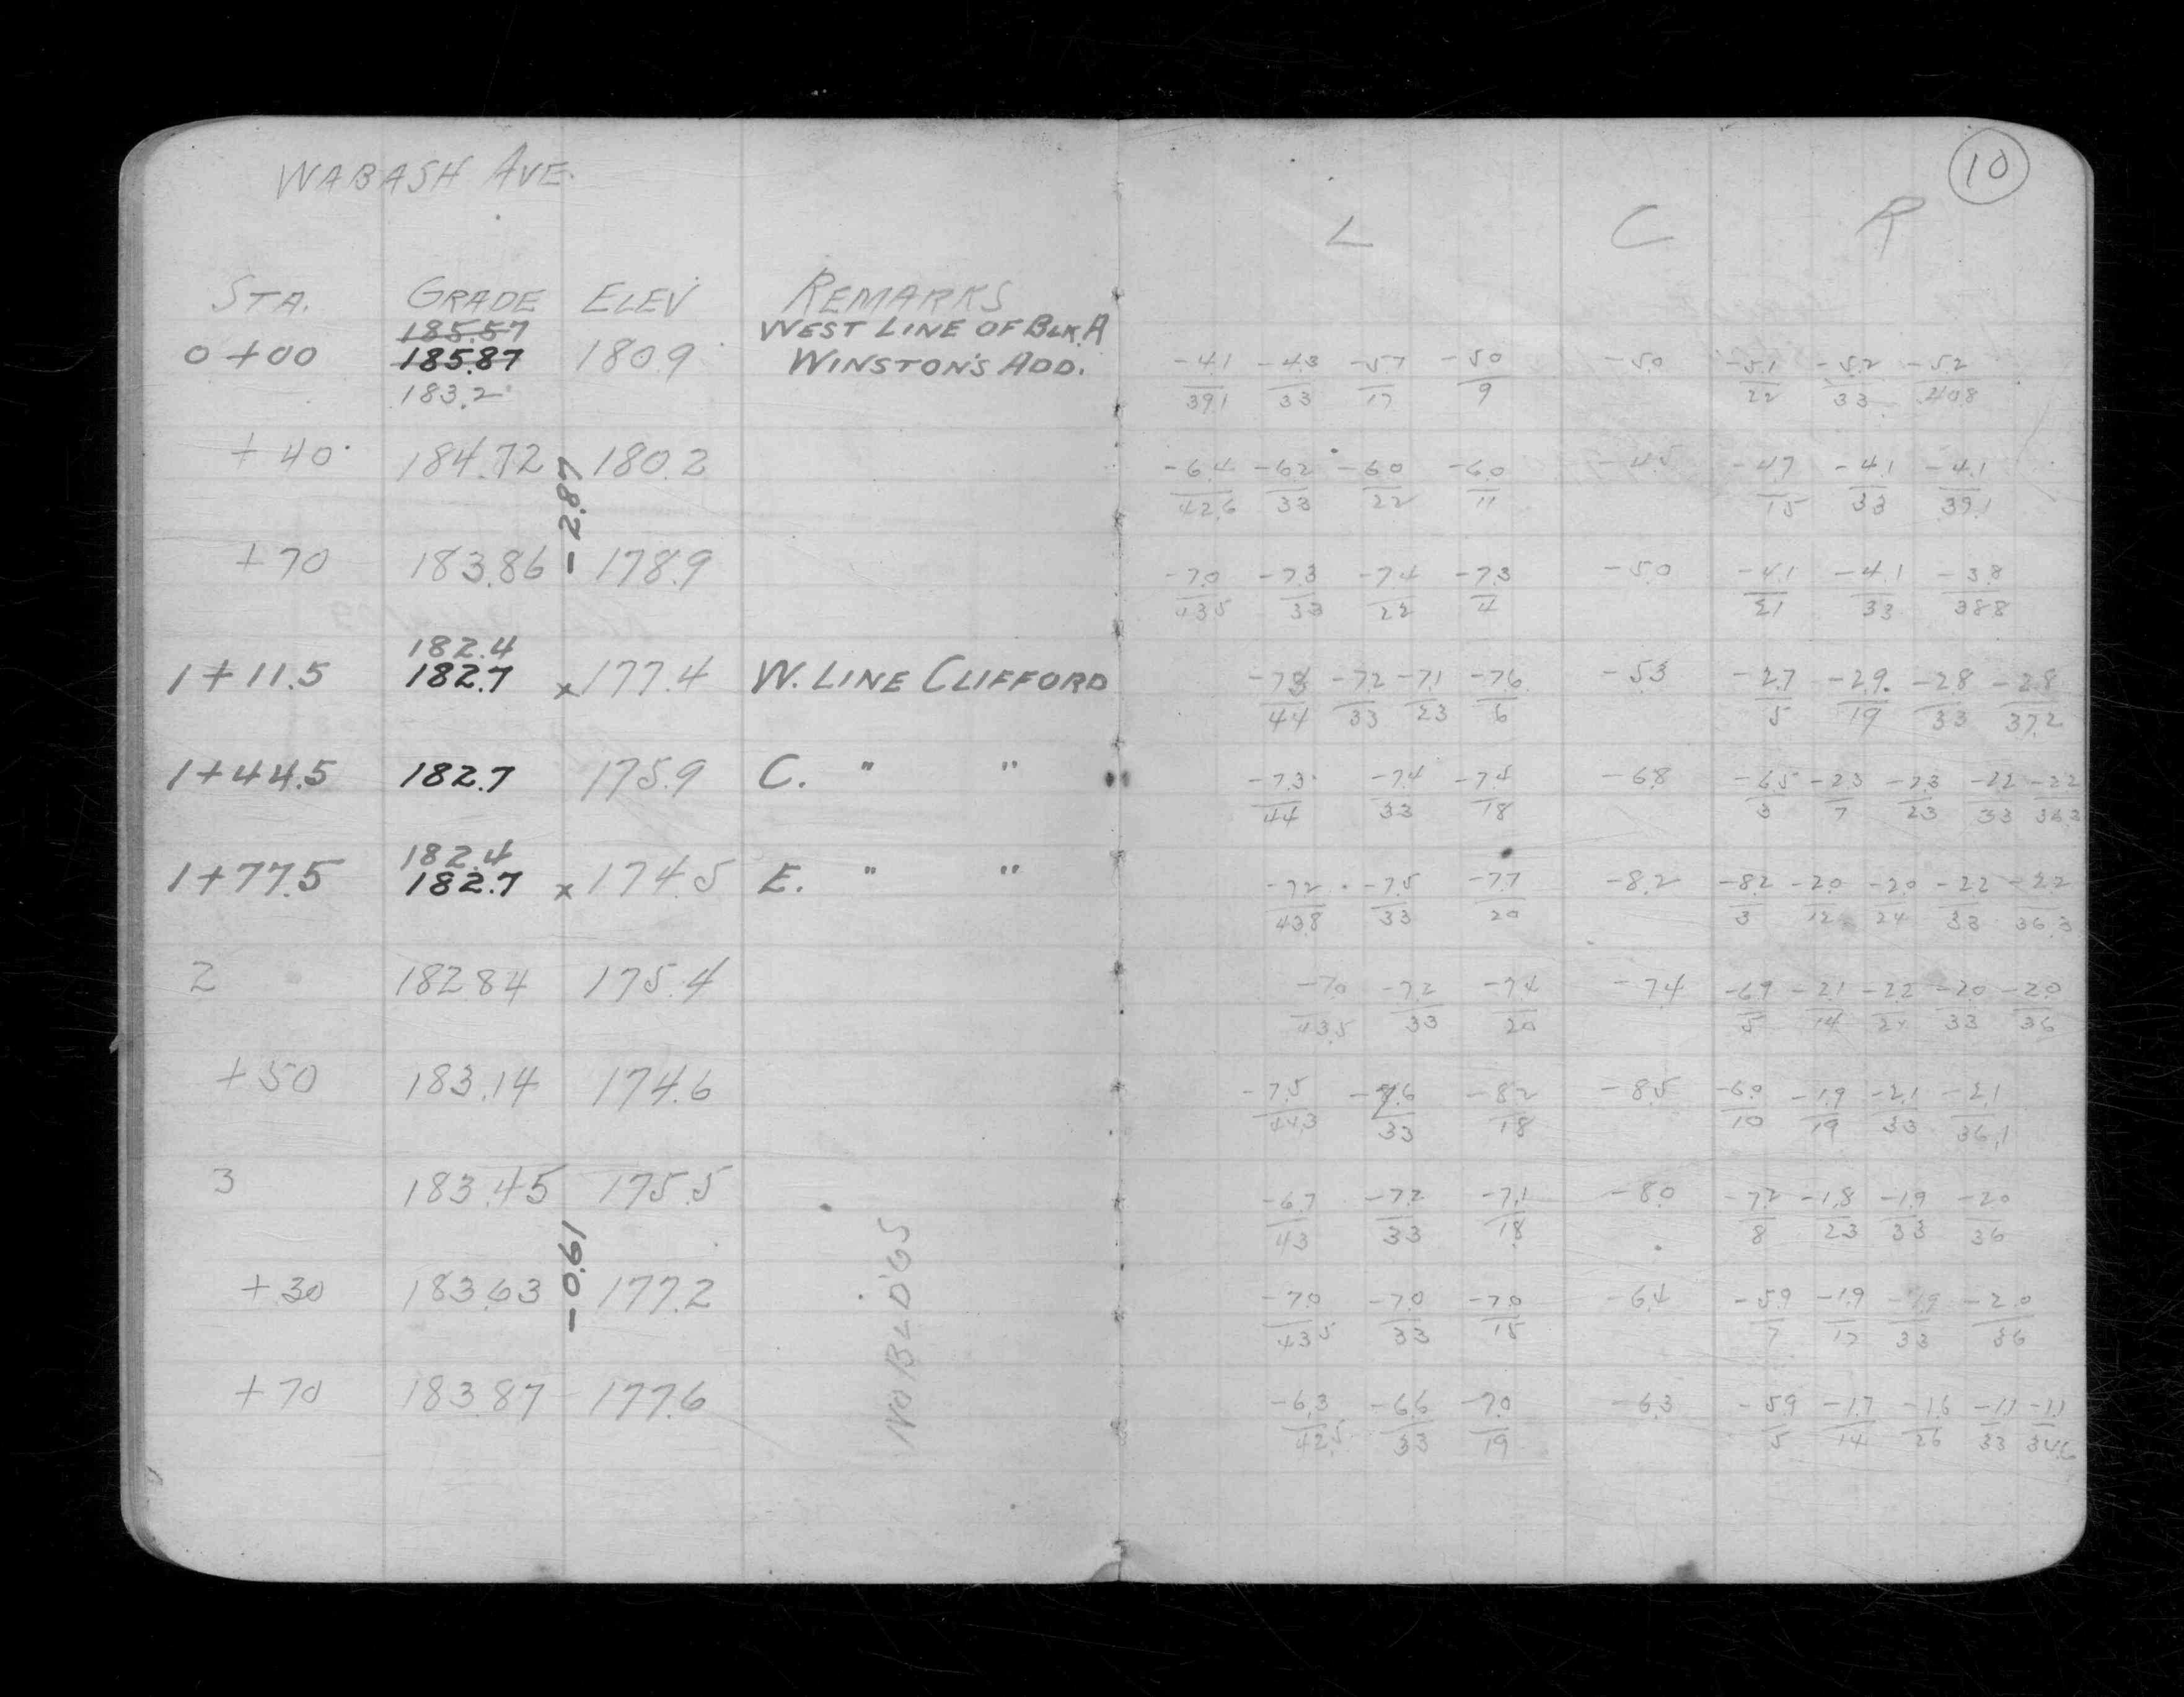 WABASH AVE.
10
L C R
STA. GRADE ELEV REMARKS
185.57 WEST LINE OF BLK. A
0+00 185.87 180.9 WINSTON'S ADD. -4.1 -4.3 -5.7 -5.0 -5.0 -5.1 -5.2 -5.2
183.2 39.1 33 17 9 22 33 40.8
+40 184.72 180.2 -6.4 -6.2 -6.0 -6.0 -4.5 -4.7 -4.1 -4.1
42.6 33 22 11 15 33 39.1
-2.87
+70 183.86 178.9 -7.0 -7.3 -7.4 -7.3 -5.0 -4.1 -4.1 -3.8
43.5 33 22 4 21 33 38.8
182.4
1+11.5 182.7 x 177.4 W. LINE CLIFFORD -7.2 -7.1 -7.6 -5.3 -2.7 -2.9 -2.8 -2.8
44 33 23 6 5 19 33 37.2
1+44.5 182.7 175.9 C. " " -7.3 -7.4 -7.4 -6.8 -6.5 -2.3 -2.3 -2.2 -2.2
44 33 18 3 7 23 33 36.3
182.4
1+77.5 182.7 x 174.5 E. " " -7.2 -7.5 -7.7 -8.2 -8.2 -2.0 -2.0 -2.2 -2.2
43.8 33 20 3 12 24 33 36.3
2 182.84 175.4 -7.0 -7.2 -7.4 -7.4 -6.9 -2.1 -2.2 -2.0 -2.0
43.5 33 20 5 14 24 33 36
+50 183.14 174.6 -7.5 -7.6 -8.2 -8.5 -6.0 -1.9 -2.1 -2.1
44.3 33 18 10 19 33 36.1
3 183.45 175.5 -6.7 -7.2 -7.1 -8.0 -7.2 -1.8 -1.9 -2.0
43 33 18 8 23 33 36
-0.61
+30 183.63 177.2 -7.0 -7.0 -7.0 -6.4 -5.9 -1.9 -1.9 -2.0
43.5 33 15 7 17 33 36
+70 183.87 177.6 -6.3 -6.6 -7.0 -6.3 -5.9 -1.7 -1.6 -1.1 -1.1
42.5 33 19 5 14 26 33 34.6
NO BLD'GS